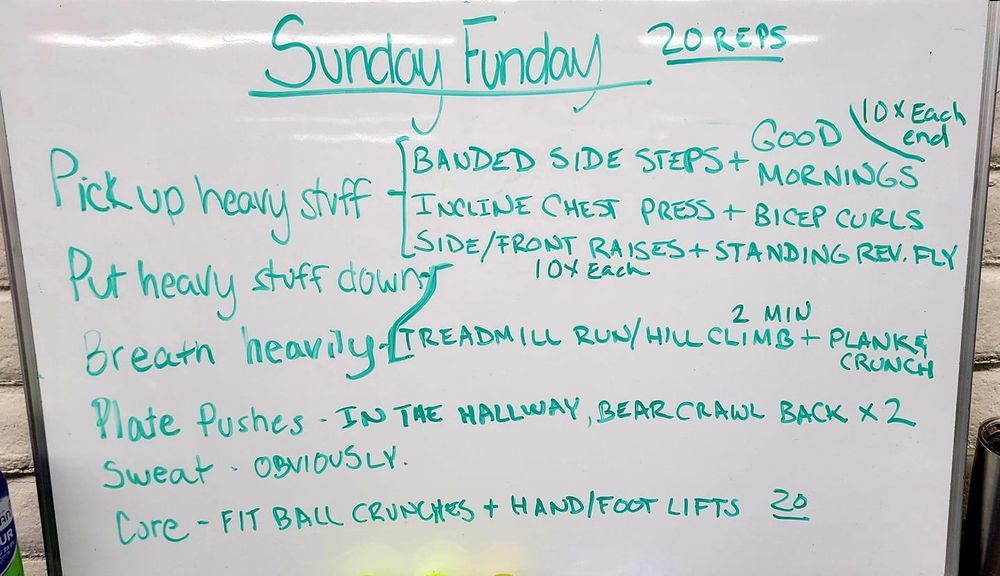 Sunday Funday 20 REPS
10 x Each end
Pick up heavy stuff - BANDED SIDE STEPS + GOOD MORNINGS
INCLINE CHEST PRESS + BICEP CURLS
SIDE/FRONT RAISES + STANDING REV. FLY
10x Each
Put heavy stuff down
2 MIN
Breath heavily - TREADMILL RUN/HILL CLIMB + PLANK &
CRUNCH
Plate Pushes - IN THE HALLWAY, BEAR CRAWL BACK x 2
Sweat - OBVIOUSLY.
Core - FIT BALL CRUNCHES + HAND/FOOT LIFTS 20